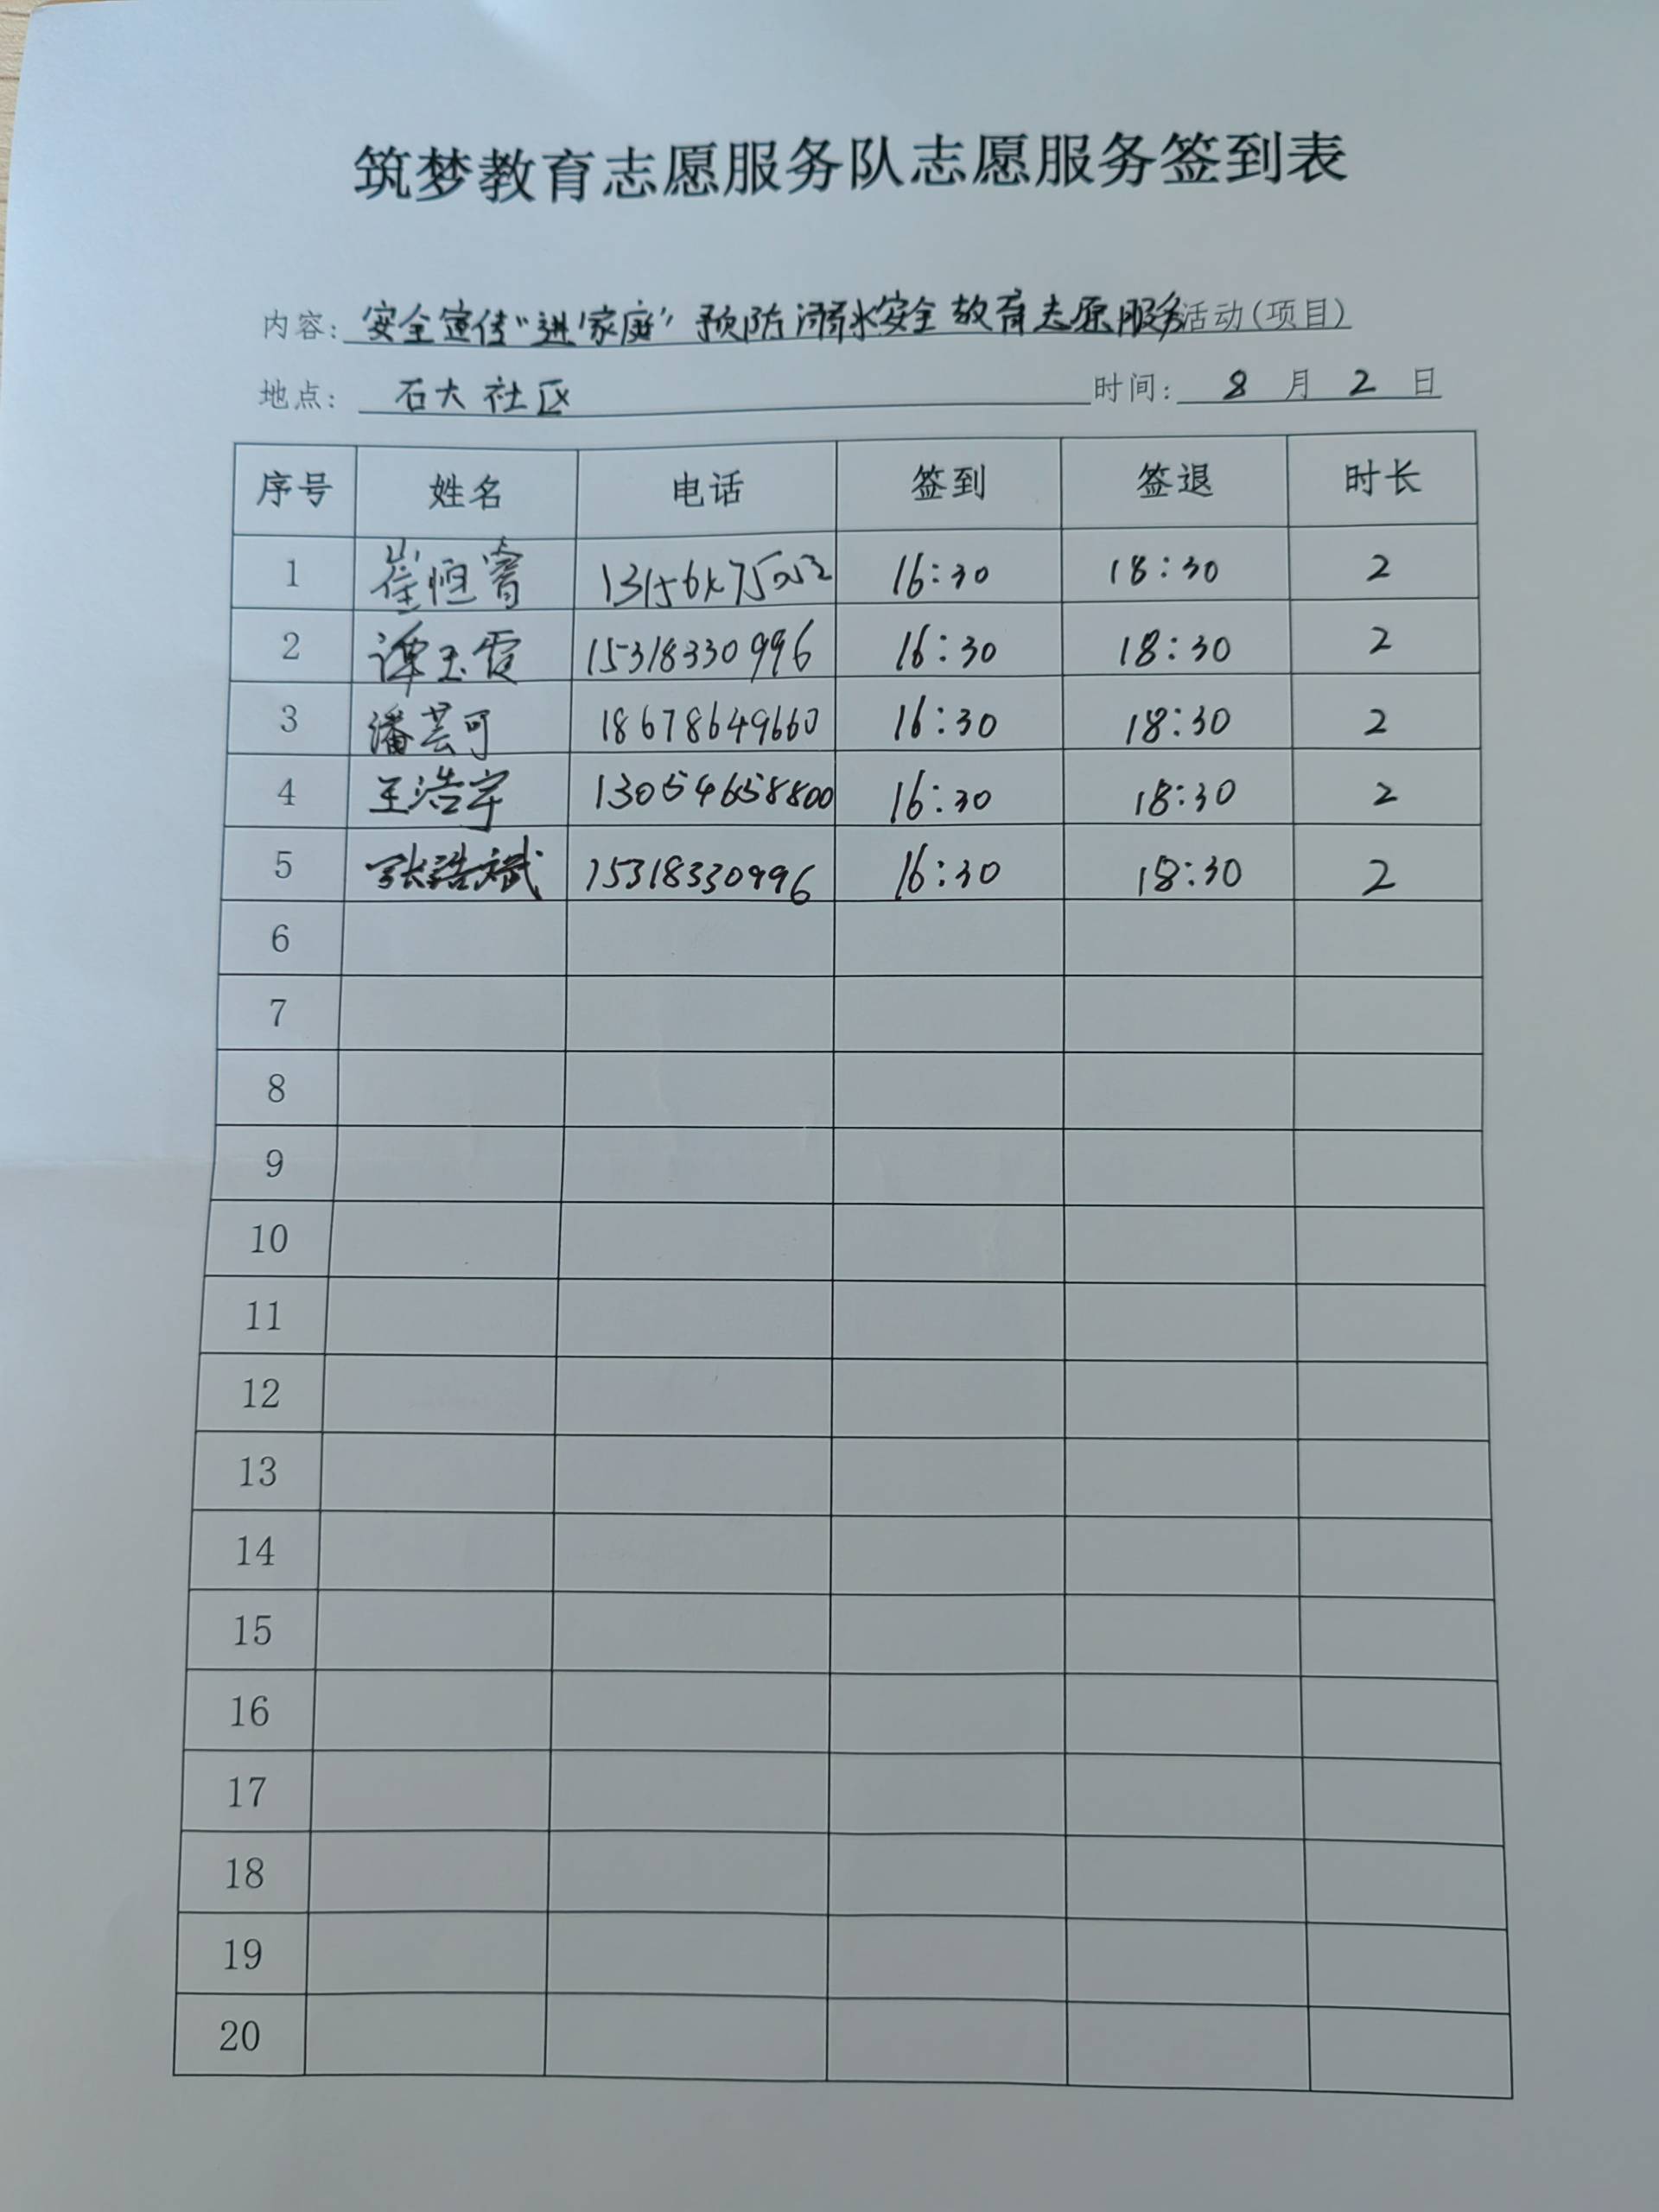 筑梦教育志愿服务队志愿服务签到表
内容: 安全宣传"进家庭"预防溺水安全教育志愿服务活动(项目)
地点: 石大社区 时间: 8 月 2 日
序号 姓名 电话 签到 签退 时长
1 崔恒睿 16:30 18:30 2
2 谭玉霞 15318330996 16:30 18:30 2
3 潘芸可 18678649660 16:30 18:30 2
4 王浩宇 13054658800 16:30 18:30 2
5 张浩斌 15318330996 16:30 18:30 2
6
7
8
9
10
11
12
13
14
15
16
17
18
19
20